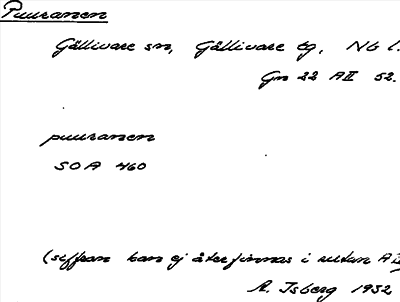 Puuranen
Gällivare sn, Gällivare tg, Nb l.
Gn 22 A II 52.
puuranen
SOA 460
(siffran kan ej återfinnas i rutan A II
A. Isberg 1932